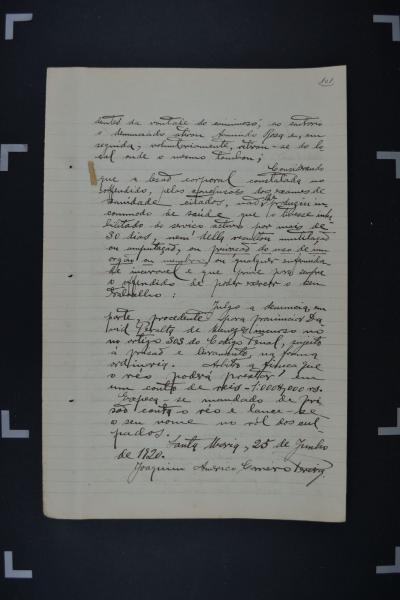 101
dentes da vontade do criminoso; ao contrario
o denunciado atirou Armindo Rosa e, em
seguida, voluntariamente, retirou-se do lo
cal onde o mesmo tombou;
Considerando
que a lesão corporal constatada no
offendido, pelas conclusões dos exames de
sanidade citados, não lhe produziu in
commodo de saude que o tivesse inha
bilitado do serviço activo por mais de
30 dias, nem della resultou mutilação
ou amputação, ou privação do uso de um
orgão ou membro, ou qualquer enfermida
de incuravel e que prive para sempre
o offendido de poder exercer o seu
trabalho:
Julgo a denuncia, em
parte, procedente para pronunciar Da
vid Peralta de Menezes incurso no
no artigo 303 do Codigo Penal, sujeito
á prisão e livramento, na forma
ordinaria. Arbitro a fiança que
o réo poderá prestar em
um conto de reis - 1.000$000 rs.
Expeça-se mandado de pri
são contra o réo e lance-se
o seu nome no ról dos cul
pados.
Santa Maria, 25 de Junho
de 1920.
Joaquim Americo